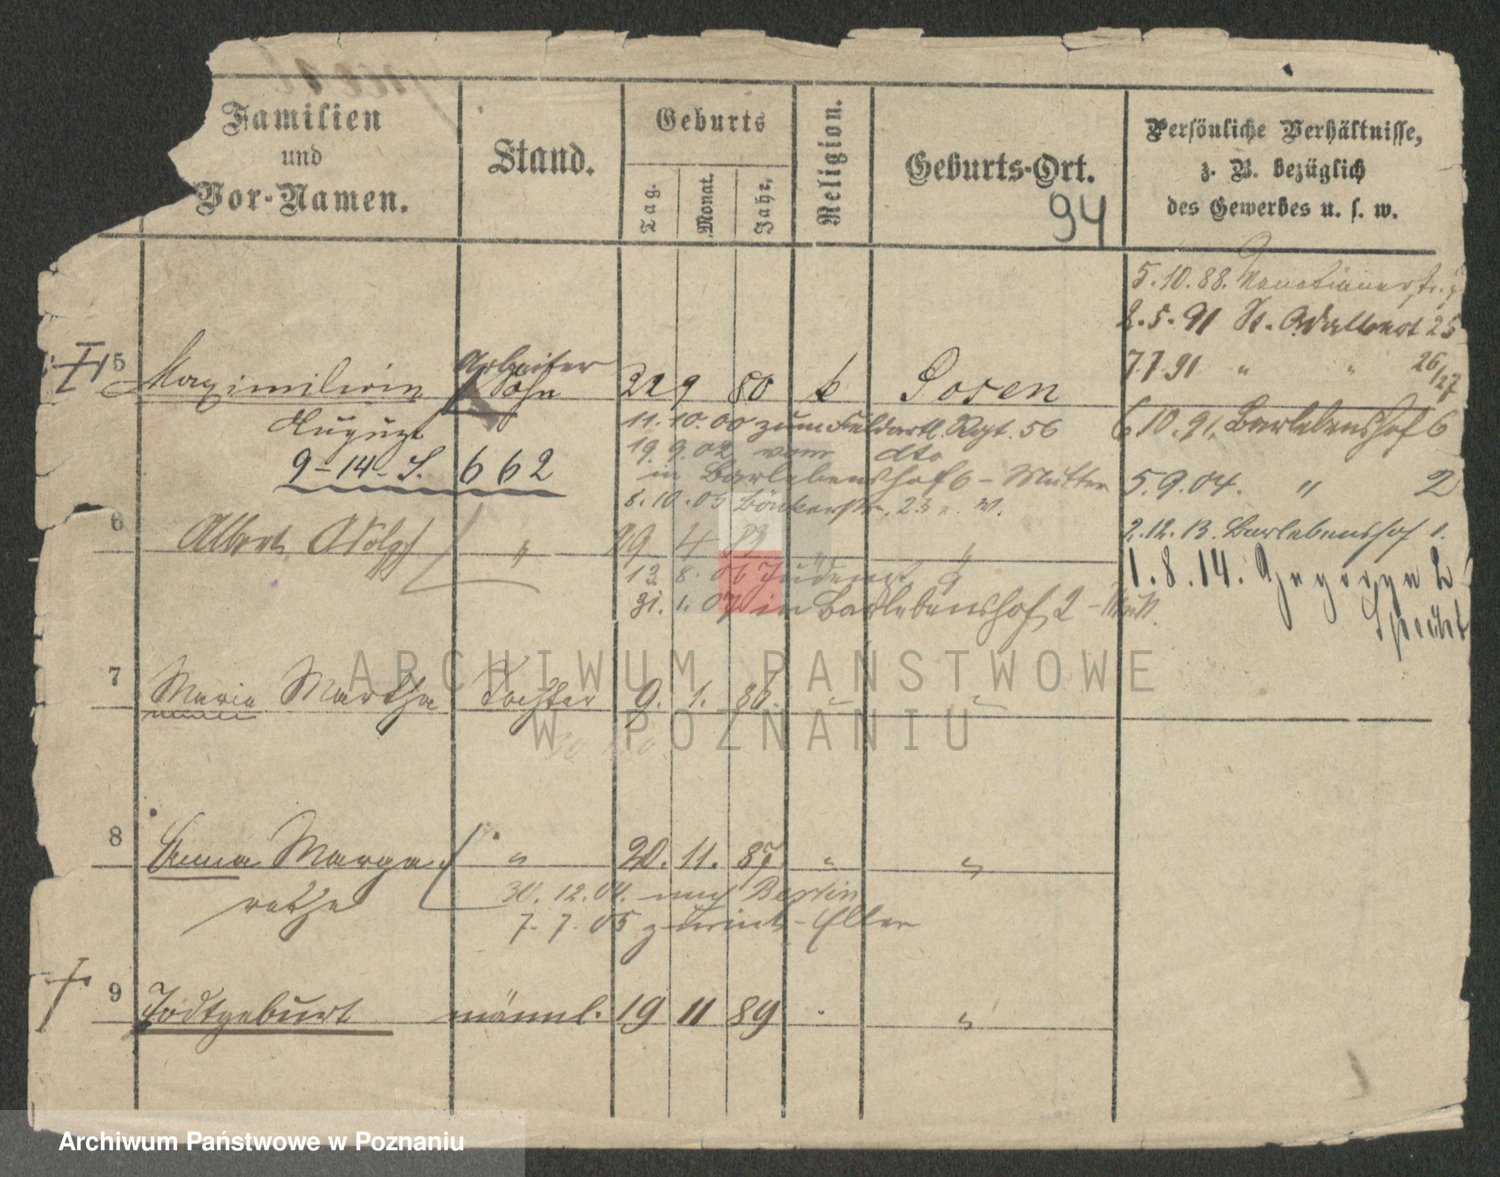 Familien
und
Vor-Namen.
Stand.
Geburts
Tag.
Monat.
Jahr.
Religion.
Geburts-Ort.
94
Persönliche Verhältnisse,
z. B. bezüglich
des Gewerbes u. s. w.
5.10.88.
2.5.91 St. Adalbert 25
7.7.91 " " 26/27
6.10.91. Barlebenshof 6
5.9.04. " 2
2.12.13. Barlebenshof 1.
1.8.14.
5 Maximilian Arbeiter Sohn 22 9 80 k Posen
August
9-14-S. 662
11.10.00 zum Feldartl. Rgt. 56
19.9.02 vom dto
in Barlebenshof 6 - Mutter
8.10.05 Bäckerstr. 23
6 Albert Adolph " 29 4 "
13 8.06
31.1.07 in Barlebenshof 2
7 Maria Martha Tochter 9. 1. " "
8 Anna Marga- " 20. 11. 87 " "
rethe
30.12.04. nach Berlin
7.7.05 zurück - Eltern
9 Todtgeburt männl. 19 11 89 . "
ARCHIWUM PAŃSTWOWE
W POZNANIU
Archiwum Państwowe w Poznaniu